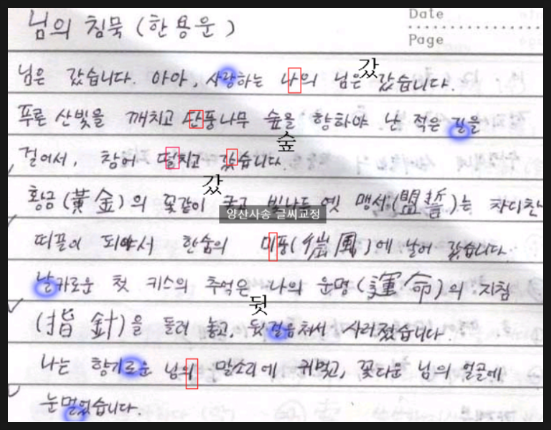 Date
Page
님의 침묵 (한용운)
님은 갔습니다. 아아, 사랑하는 나의 님은 갔습니다.
갔
푸른 산빛을 깨치고 단풍나무 숲을 향하야 난 적은 길을
숲
걸어서, 참어 떨치고 갔습니다.
갔
황금(黃金)의 꽃같이 굳고 빛나든 옛 맹서(盟誓)는 차디찬
양산사송 글씨교정
띠끌이 되야서 한숨의 미풍( 風)에 날어 갔습니다.
날카로운 첫 키스의 추억은 나의 운명(運命)의 지침
뒷
(指針)을 돌려 놓고, 뒷걸음쳐서 사러졌습니다.
나는 향기로운 님의 말소리에 귀먹고, 꽃다운 님의 얼굴에
눈멀었습니다.